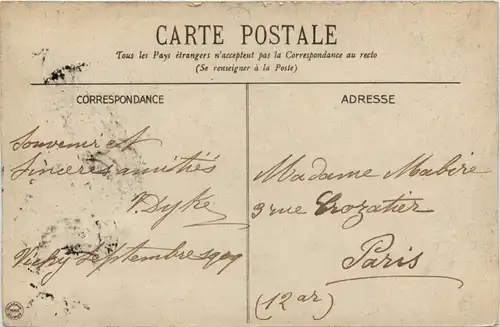 CARTE POSTALE
Tous les Pays étrangers n'acceptent pas la Correspondance au recto
(Se renseigner à la Poste)
CORRESPONDANCE
Souvenir et
Sincères amitiés
V. Dyke
Vichy Septembre 1909
ADRESSE
Madame Mabire
9 rue Crozatier
Paris
(12 ar)